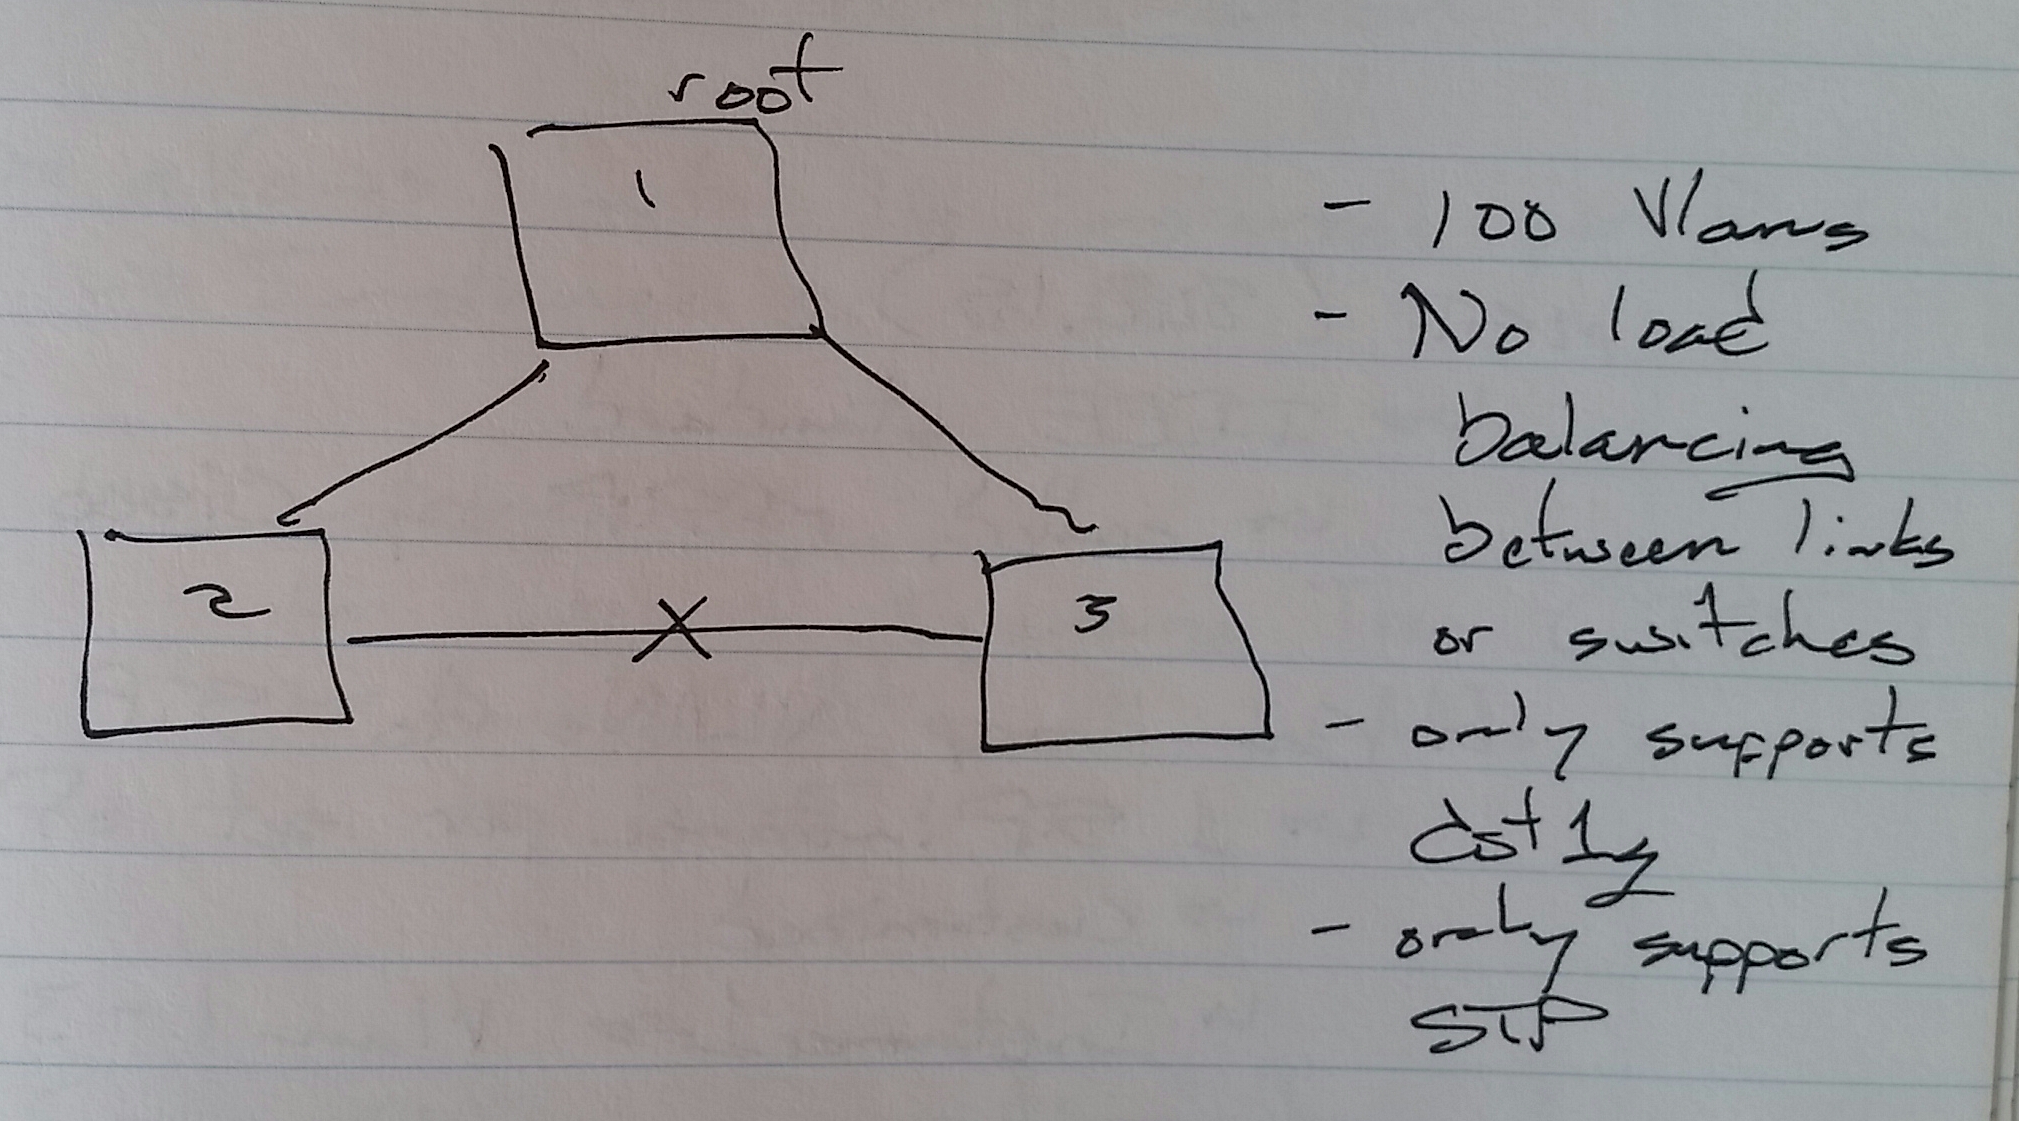 root
1
2
3
- 100 Vlans
- No load
balancing
between links
or switches
- only supports
dot1q
- only supports
STP